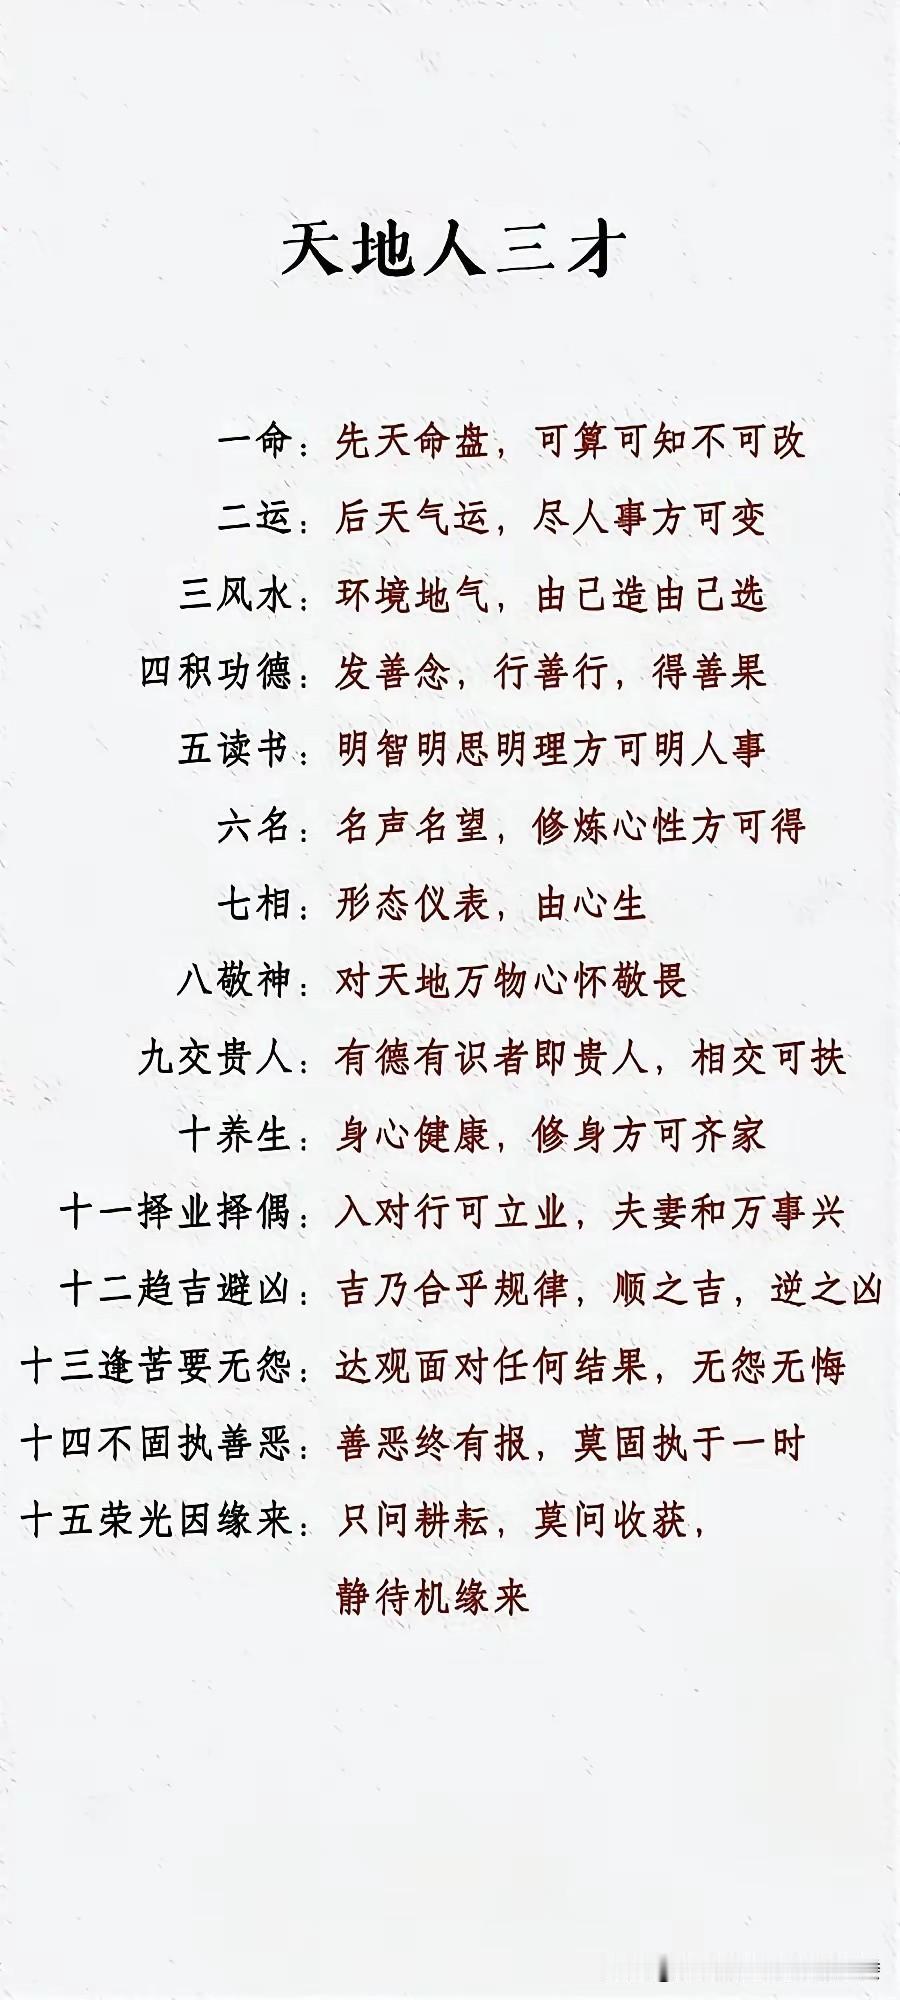 天地人三才
一命：先天命盘，可算可知不可改
二运：后天气运，尽人事方可变
三风水：环境地气，由己造由己选
四积功德：发善念，行善行，得善果
五读书：明智明思明理方可明人事
六名：名声名望，修炼心性方可得
七相：形态仪表，由心生
八敬神：对天地万物心怀敬畏
九交贵人：有德有识者即贵人，相交可扶
十养生：身心健康，修身方可齐家
十一择业择偶：入对行可立业，夫妻和万事兴
十二趋吉避凶：吉乃合乎规律，顺之吉，逆之凶
十三逢苦要无怨：达观面对任何结果，无怨无悔
十四不固执善恶：善恶终有报，莫固执于一时
十五荣光因缘来：只问耕耘，莫问收获，
静待机缘来